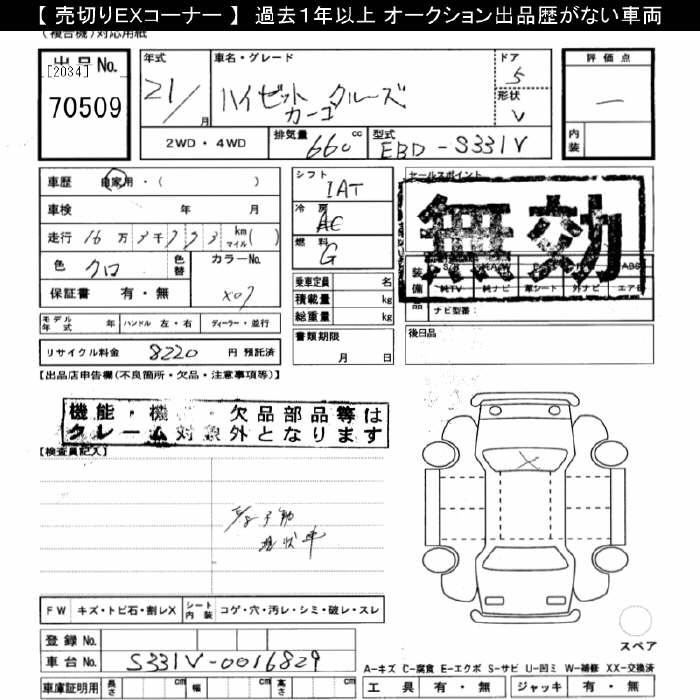 【 売切りEXコーナー 】 過去1年以上 オークション出品歴がない車両
(複合機)対応用紙
出品No.
[2034]
70509
年式
21/
月
車名・グレード
ハイゼット クルーズ
カーゴ
ドア
5
形状
V
評価点
一
内装
2WD・4WD
排気量 660 cc
型式 EBD-S331V
車歴 自家用・( )
車検 年 月
走行 16万3千773 km マイル( )
色 クロ 色替 カラーNo.
X07
保証書 有・無
モデル年式 年 ハンドル 左・右 ディーラー・並行
リサイクル料金 8220 円 預託済
シフト
IAT
冷房
AC
燃料
G
乗車定員 名
積載量 kg
総重量 kg
書類期限
月 日
セールスポイント
無効
装備品
純TV 純ナビ 革シート 外ナビ エアB
ABS
ナビ型番:
後日品
【出品店申告欄(不良箇所・欠品・注意事項等)】
機能・機 ・ 欠品部品等は
クレーム対象外となります
【検査員記入】
現状車
FW キズ・トビ石・割レX シート内装 コゲ・穴・汚レ・シミ・破レ・スレ
登録No.
車台No. S331V-0016829
車庫証明用 長さ cm 幅 cm 高さ cm
スペア
A-キズ C-腐食 E-エクボ S-サビ U-凹ミ W-補修 XX-交換済
工具 有・無 ジャッキ 有・無